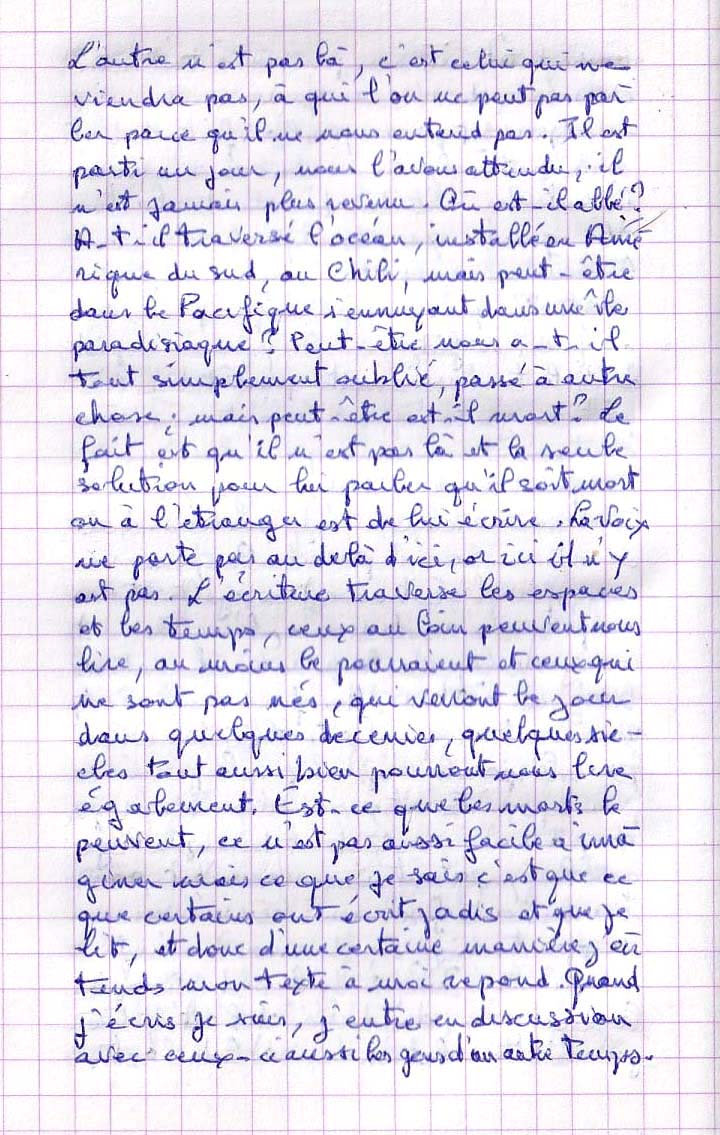 L'autre n'est pas là, c'est celui qui ne
viendra pas, à qui l'on ne peut pas par
ler parce qu'il ne nous entend pas. Il est
parti un jour, nous l'avons attendu, il
n'est jamais plus revenu. Où est-il allé?
A-t-il traversé l'océan, installé en Amé
rique du sud, au Chili, mais peut-être
dans le Pacifique s'ennuyant dans une île
paradisiaque? Peut-être nous a-t-il
tout simplement oublié, passé à autre
chose; mais peut-être est-il mort? Le
fait est qu'il n'est pas là et la seule
solution pour lui parler qu'il soit mort
ou à l'étranger est de lui écrire. La voix
ne porte pas au delà d'ici, or ici il n'y
est pas. L'écriture traverse les espaces
et les temps, ceux au loin peuvent nous
lire, au moins le pourraient et ceux qui
ne sont pas nés, qui verront le jour
dans quelques décenies, quelques siè-
cles tout aussi bien pourront nous lire
également. Est-ce que les morts le
peuvent, ce n'est pas aussi facile à ima
giner mais ce que je sais c'est que ce
que certains ont écrit jadis et que je
lit, et donc d'une certaine manière j'en
tends mon texte à moi repond. Quand
j'écris je suis, j'entre en discussion
avec ceux-ci aussi les gens d'un autre temps.